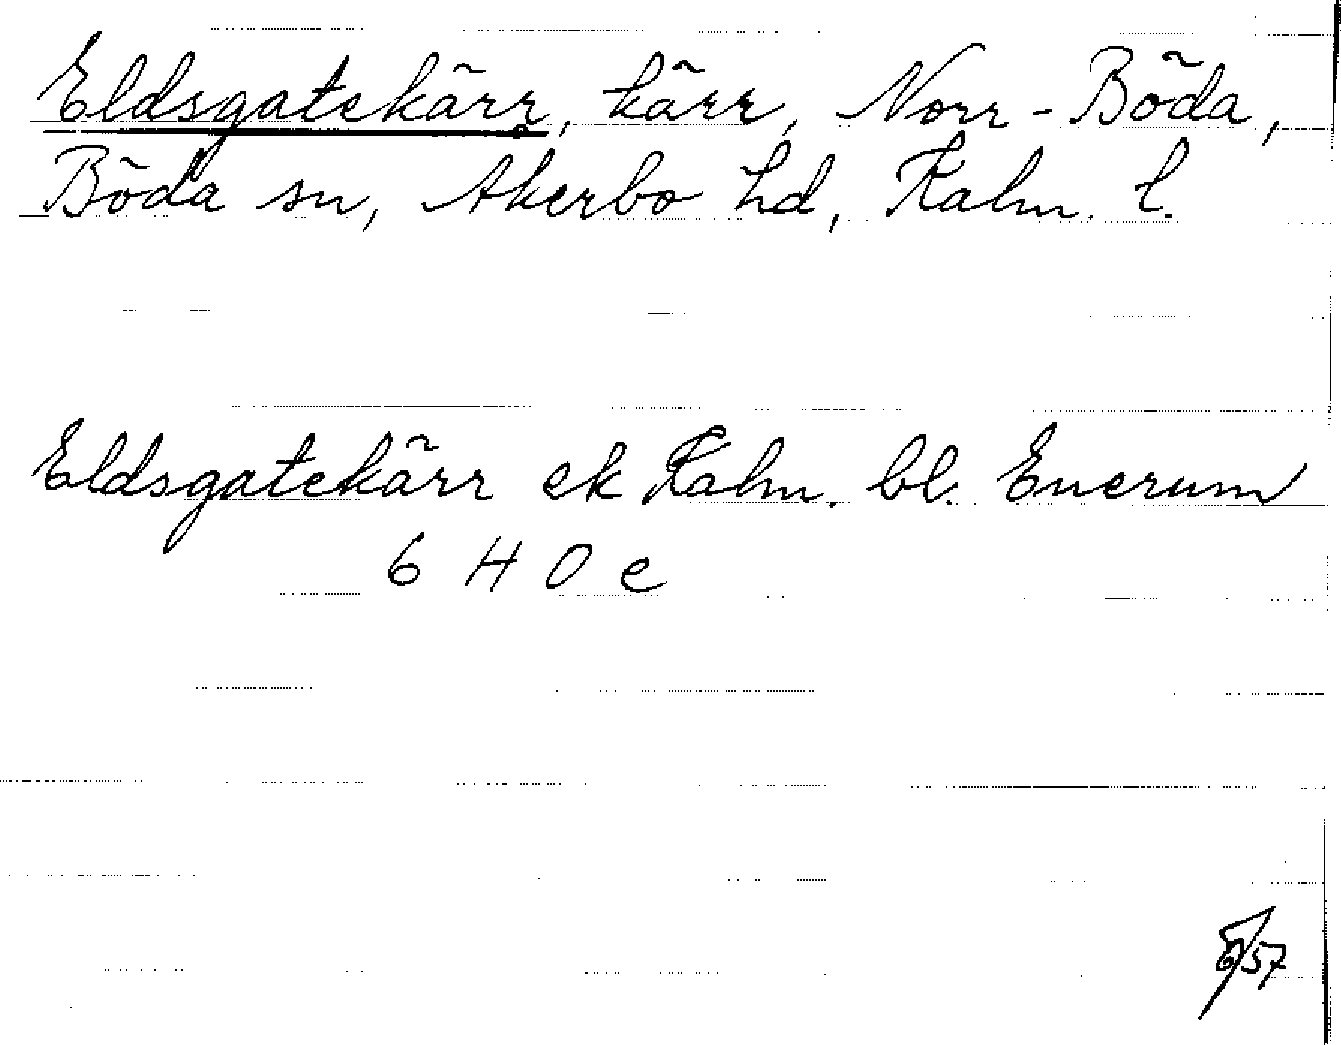 Eldsgatekärr, kärr, Norr-Böda,
Böda sn, Åkerbo hd, Kalm. l.
Eldsgatekärr ek Kalm. bl. Enerum
6 H 0 e